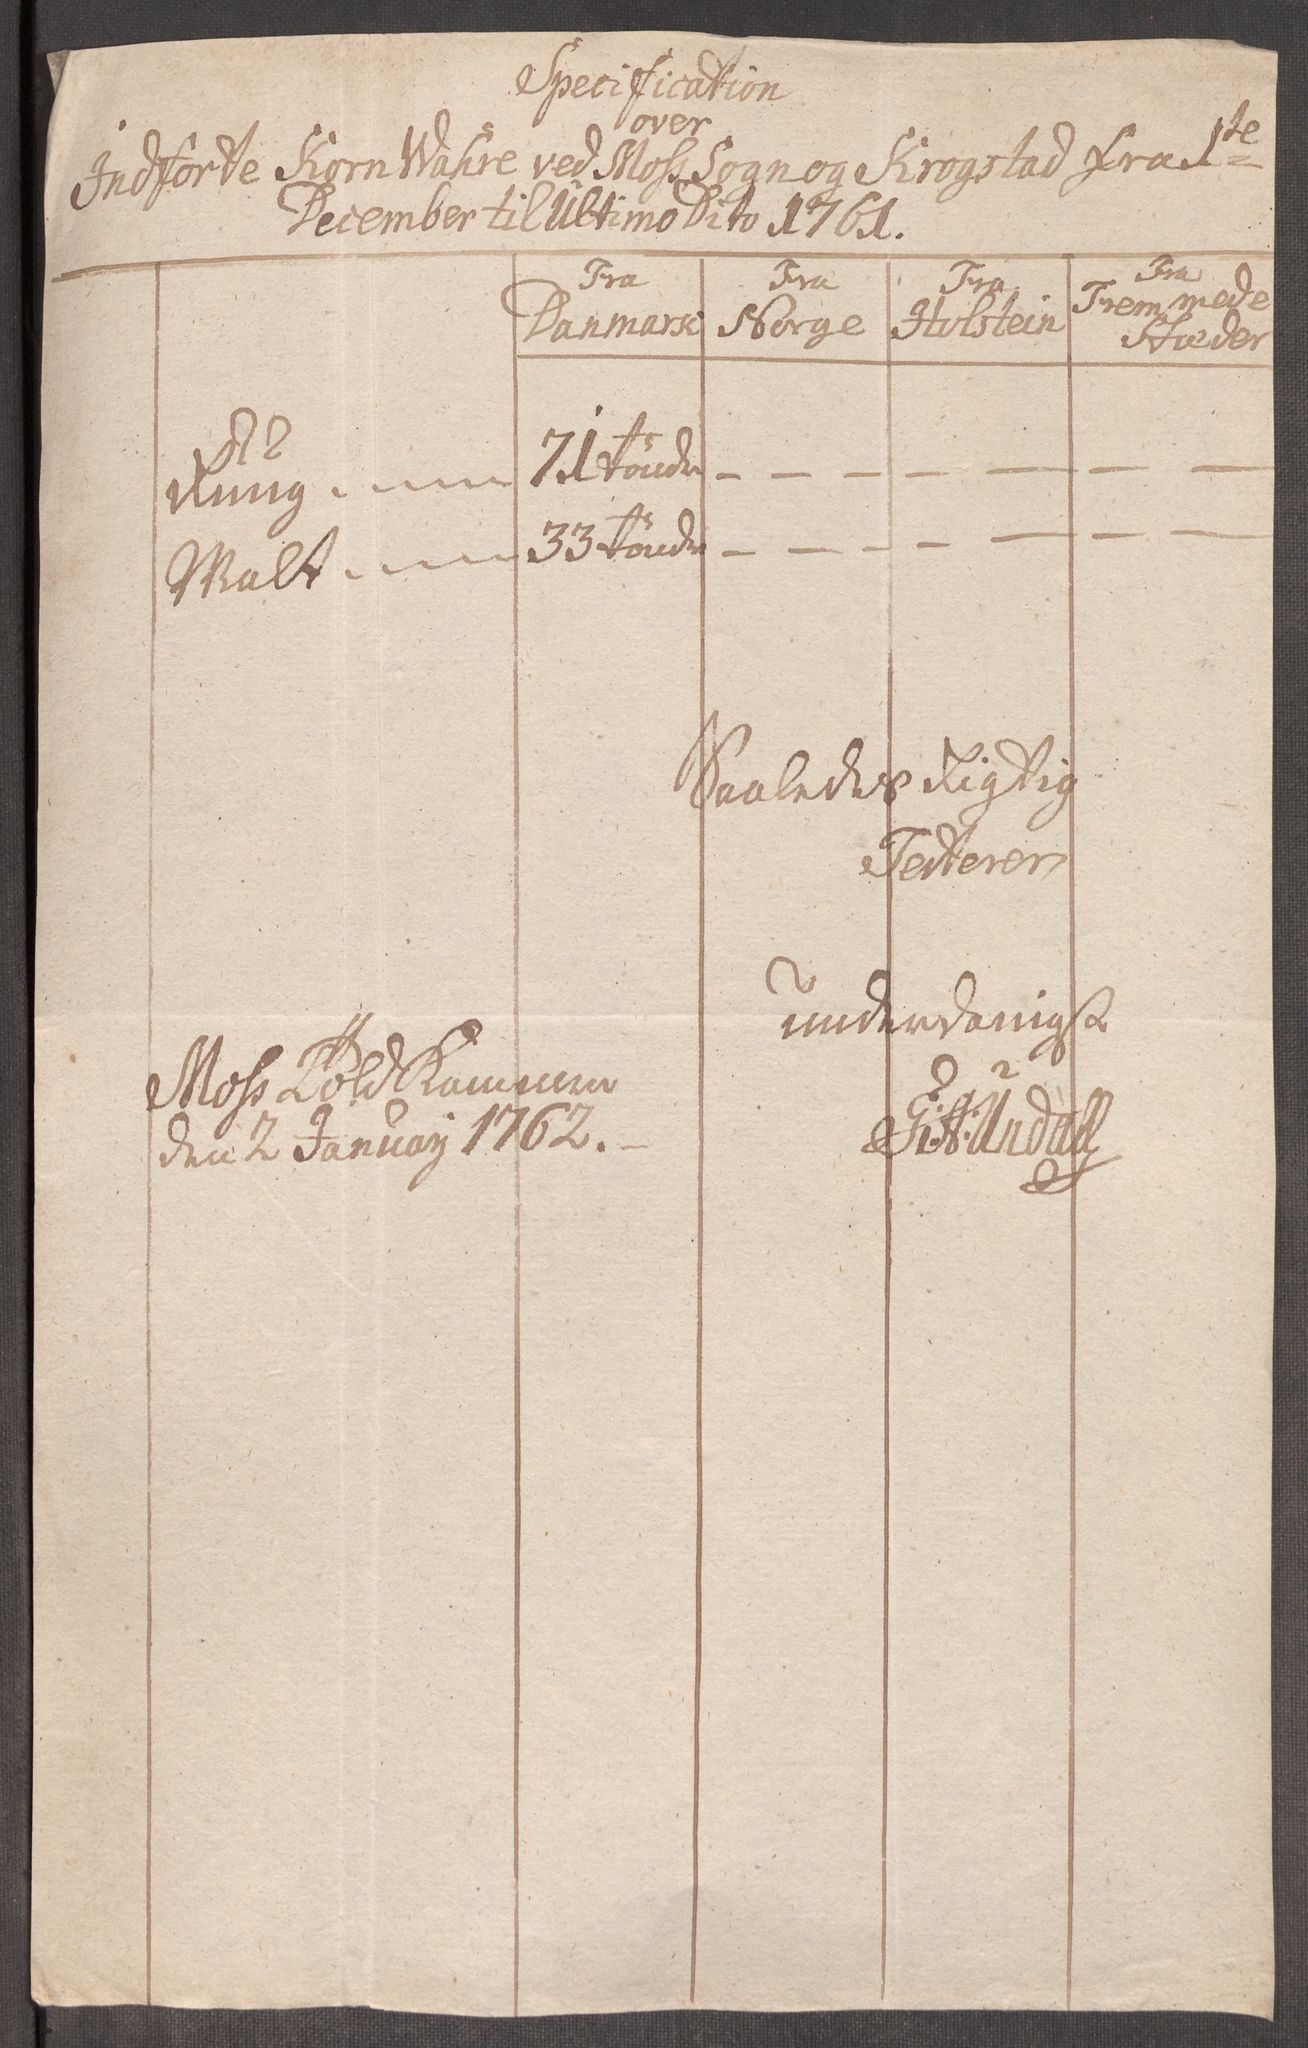 Specification
over
Indførte Korn Wahre ved Moss Sogn og Krogstad fra 1te
December til Ultimo Dito 1761.
Fra Danmark
Fra Norge
Fra Holstein
Fra Fremmede Stæder
Rüug 71 tönder
Malt 33 tönder
Saaledes Rigtig
Testerer
underdanigst
Moss Told Kammer
den 2 January 1762.